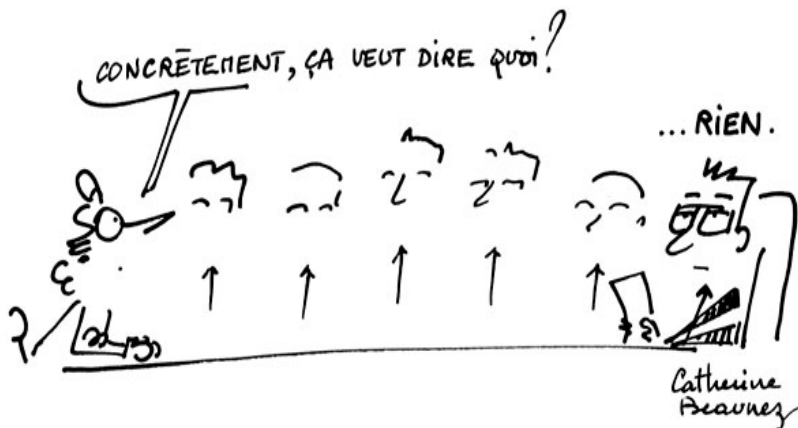 CONCRÈTEMENT, ÇA VEUT DIRE quoi?
... RiEN.
Catherine
Beaunez